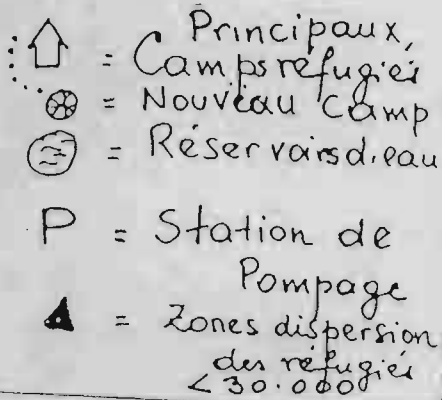 Principaux,
= Camps réfugiés
= Nouveau Camp
= Réservoirs d.eau
P = Station de
Pompage
= Zones dispersion
des réfugiés
< 30.000